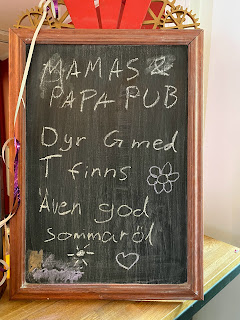 MAMAS &
PAPA PUB
Dyr G med
T finns
Även god
sommaröl